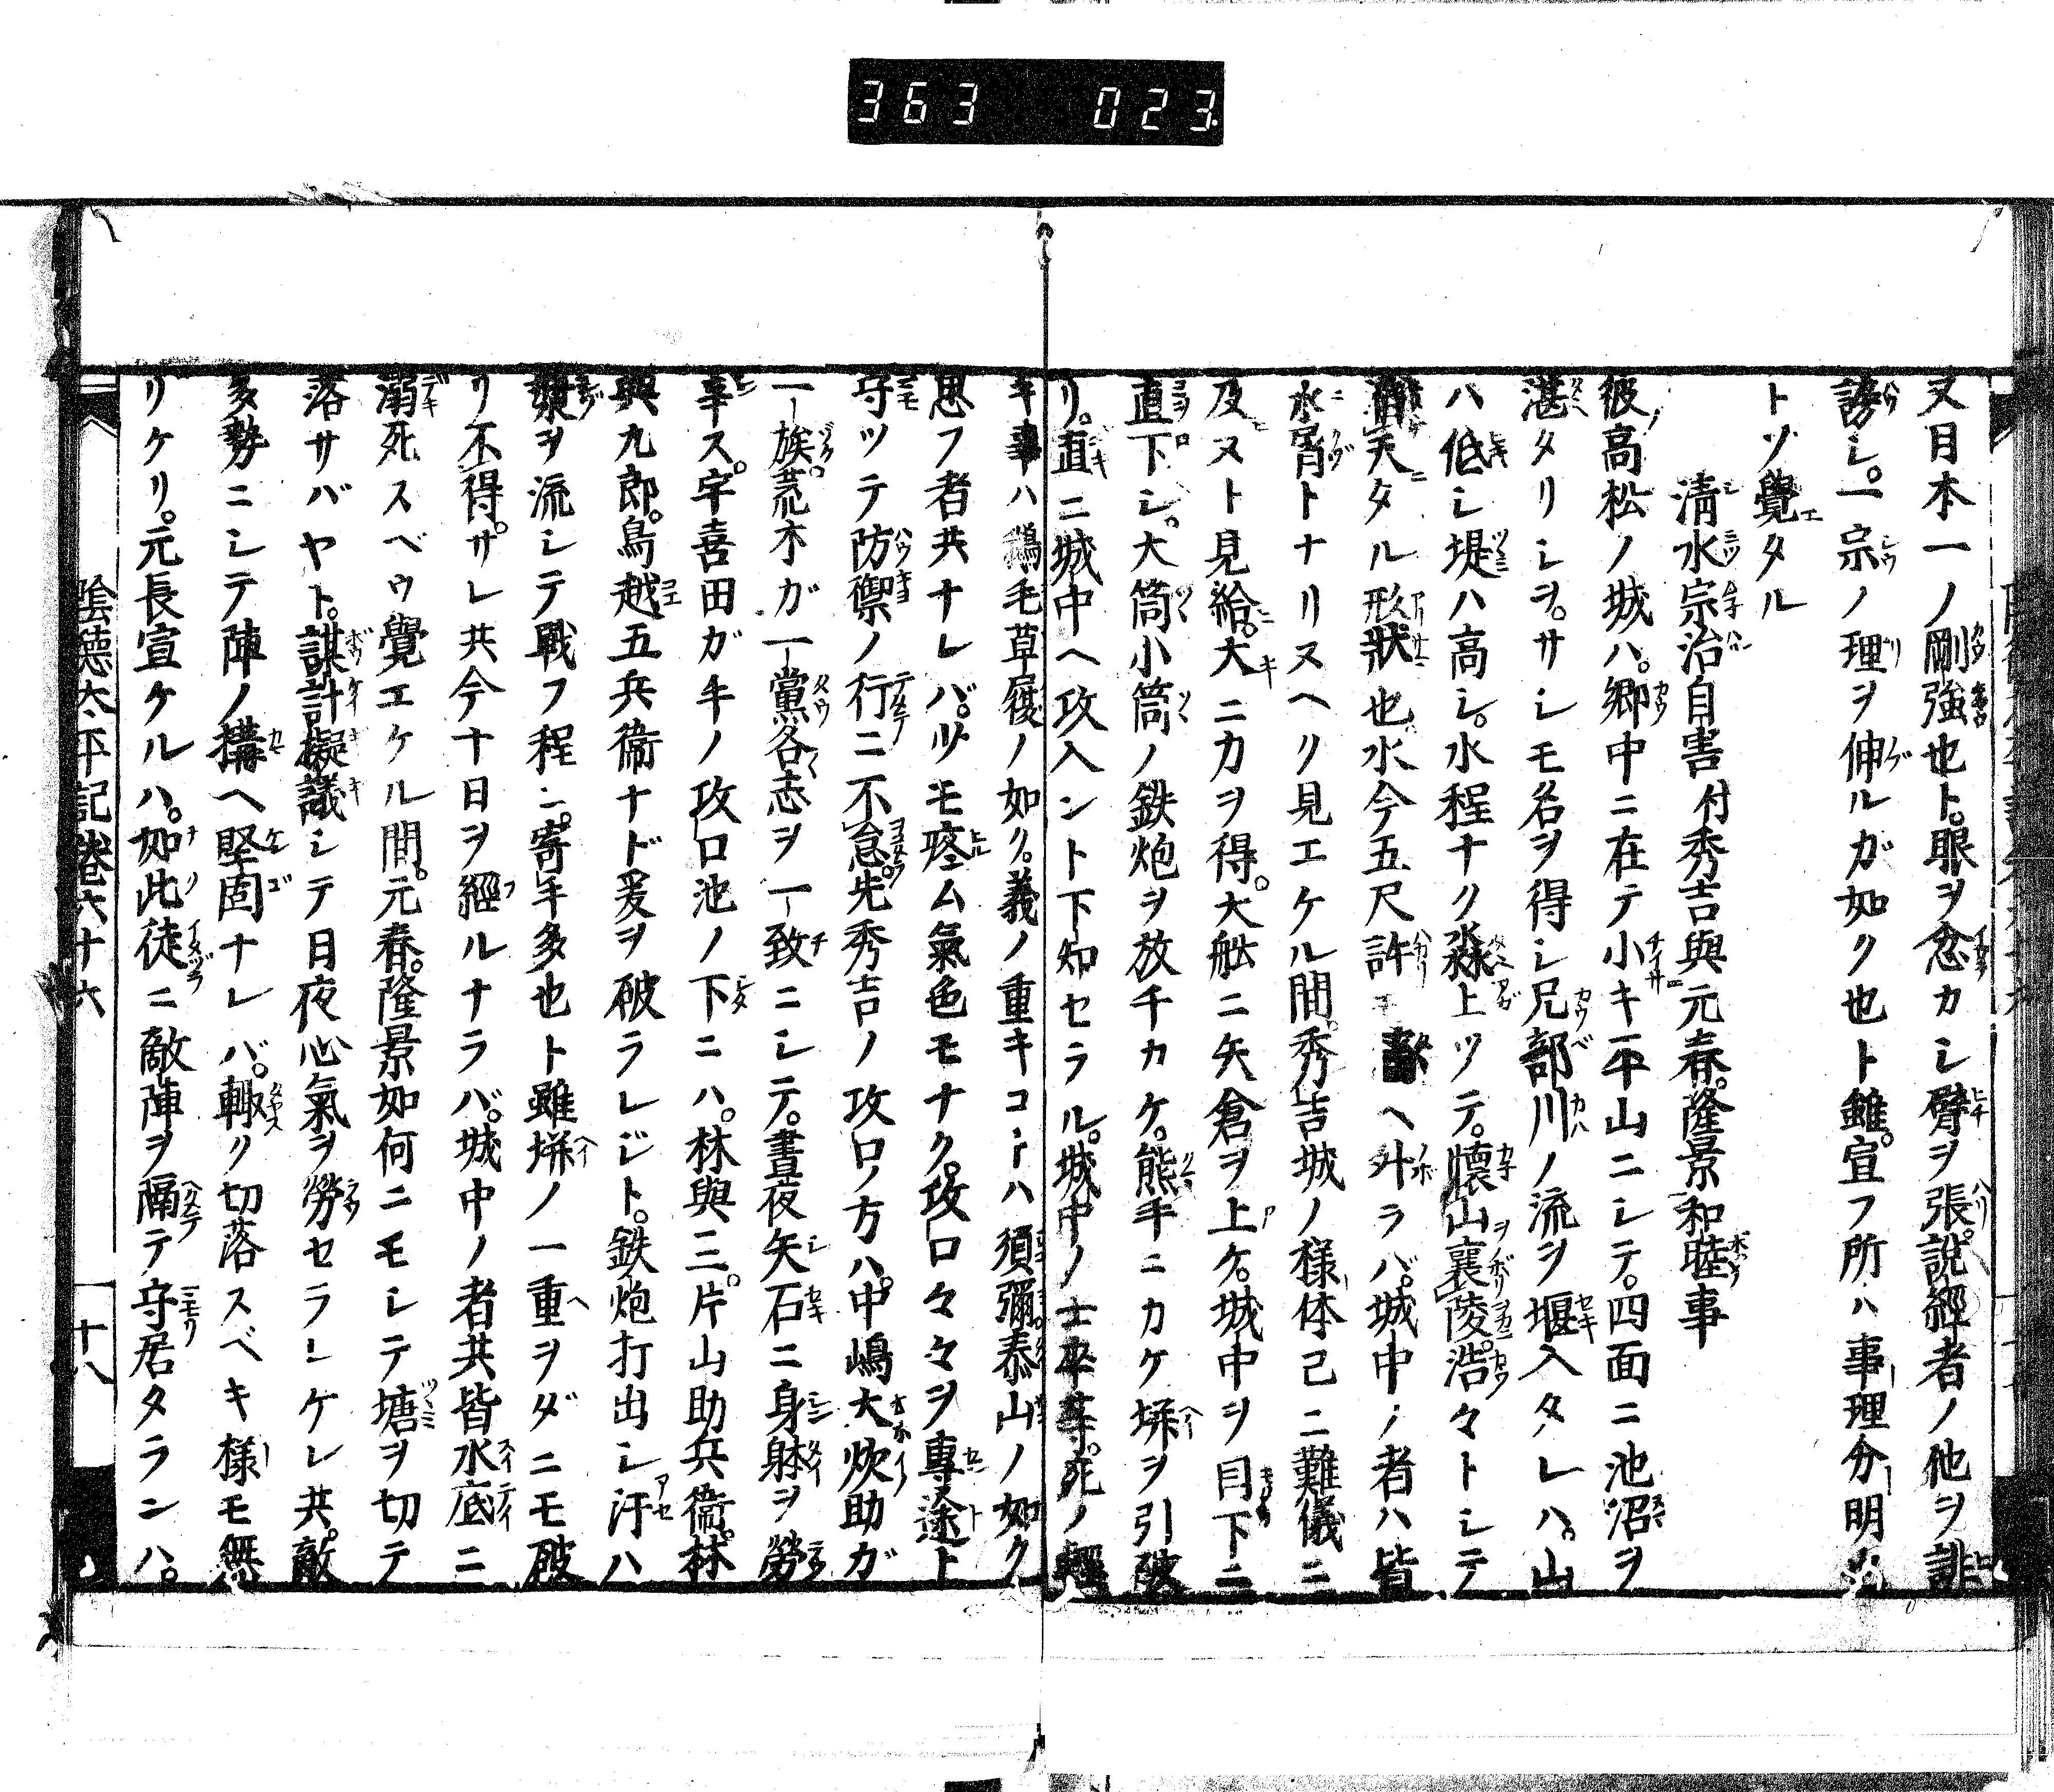 363 023
又日本一ノ剛強也ト。眼ヲ忿カシ臂ヲ張。説經者ノ他ヲ誹
謗シ。一宗ノ理ヲ伸ルガ如ク也ト雖。宣フ所ハ事理分明
トゾ覺エタル
清水宗治自害付秀吉與元春。隆景和睦事
彼高松ノ城ハ。郷中ニ在テ小キ平山ニシテ。四面ニ池沼ヲ
湛タリシヲ。サシモ名ヲ得シ兄部川ノ流ヲ堰入タレハ。山
ハ低シ堤ハ高シ。水程ナク淼上ツテ。懐山襄陵浩々トシテ
滔天タル形狀也水今五尺許モヘ外ラバ。城中ノ者ハ皆
水屑トナリヌヘク見エケル間。秀吉城ノ様体已ニ難儀ニ
及ヌト見給。大ニ力ヲ得。大舩ニ矢倉ヲ上ケ。城中ヲ目下ニ
直下シ。大筒小筒ノ鉄炮ヲ放チカケ。熊手ニカケ塀ヲ引破
リ。直ニ城中ヘ攻入ント下知セラル。城中ノ士卒等。死ノ輕
キ事ハ鵝毛草履ノ如ク。義ノ重キコトハ須彌泰山ノ如ク
思フ者共ナレバ。少モ疼ム氣色モナク。攻口々々ヲ專途ト
守ツテ防禦ノ行ニ不怠。先秀吉ノ攻口ノ方ハ。中嶋大炊助ガ
一族。荒木ガ一黨各志ヲ一致ニシテ。晝夜矢石ニ身躰ヲ勞
辛ス。宇喜田ガ手ノ攻口池ノ下ニハ。林與三。片山助兵衞。林
與九郎。鳥越五兵衞ナド爰ヲ破ラレジト。鉄炮打出シ汗ハ
漿ヲ流シテ戰フ程ニ。寄手多也ト雖塀ノ一重ヲダニモ破
リ不得。サレ共今十日ヲ經ルナラバ。城中ノ者共皆水底ニ
溺死スベウ覺エケル間。元春。隆景如何ニモシテ塘ヲ切テ
落サバヤト。謀計擬議シテ日夜心氣ヲ勞セラレケレ共。敵
多勢ニシテ陣ノ構ヘ堅固ナレバ。輙ク切落スベキ様モ無
リケリ。元長宣ケルハ。如此徒ニ敵陣ヲ隔テ守居タランハ。
陰徳太平記卷六十六
十八